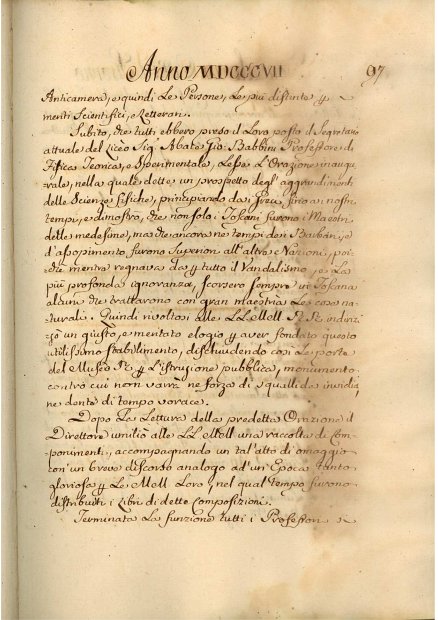 Anno MDCCCVII 97
Anticamera, e quindi Le Persone, Le più distinte p
meriti Scientifici, e Letterari.
Subito, che tutti ebbero preso il Loro posto il Segretario
attuale del Liceo Sig. Abate Gio Babbini Professore di
Fisica Teorica, e Sperimentale, Lesse L'Orazione inaugu
rale, nella quale dette un prospetto degl'aggrandimenti
delle Scienze fisiche, principiando da i Greci fino a i nostri
tempi, e dimostrò, che non solo i Toscani furono i Maestri
delle medesime, ma che ancora ne tempi de i Barbari, e
d'assopimento furono Superiori all'altre Nazioni, poi-
che mentre regnava da p tutto il Vandalismo, e La
più profonda ignoranza, scorsero sempre in Toscana
alcuni che trattarono con gran maestria Le cose na-
turali. Quindi rivoltosi alle LL. MM. R. R. indiriz-
zò un giusto, e meritato elogio p aver fondato questo
utilissimo stabilimento, dischiudendo così Le porte
del Museo R. p L'istruzione pubblica, monumento
contro cui non varrà ne forza di squallida invidia
ne dente di tempo vorace.
Dopo La Lettura della predetta Orazione il
Direttore umiliò alle LL. MM. una raccolta di Com-
ponimenti, accompagnando un tal'atto di omaggio
con un breve discorso analogo ad un'Epoca tanto
gloriosa p Le Loro, nel qual tempo furono
distribuiti i Libri di dette Composizioni.
Terminata La funzione tutti i Professori